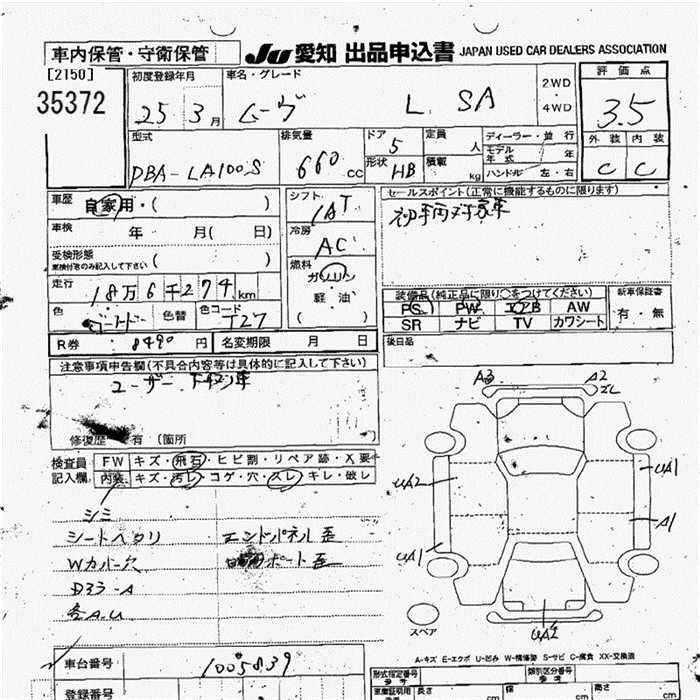 車内保管・守衛保管
JU 愛知 出品申込書 JAPAN USED CAR DEALERS ASSOCIATION
[2150]
35372
初度登録年月
25 3月
車名・グレード
ムーヴ L SA
2WD ・ 4WD
評価点
3.5
外装 内装
C C
型式
DBA-LA100S
排気量
660 cc
ドア 5
形状 HB
定員 人
積載 kg
ディーラー・並行
モデル年式 年
ハンドル 左・右
車歴 自家用・( )
車検 年 月( 日)
受検形態
車検付者のみ記入して下さい ( )
走行 18万6千274km
色
色替
色コード T27
R券 8490円
名変期限 月 日
シフト IAT
冷房 AC
燃料
ガソリン
軽油
( )
セールスポイント(正常に機能するものに限ります)
装備品(純正品に限り○をつけてください)
PS PW エアB AW
SR ナビ TV カワシート
新車保証書
有・無
後日品
注意事項申告欄(不具合内容等は具体的に記入して下さい)
ユーザー下取り車
修復歴 有 (箇所
検査員記入欄
FW キズ・飛石・ヒビ割・リペア跡・X要
内装 キズ・汚レ・コゲ・穴・スレ・キレ・破レ
シミ
シートヘタリ エンドパネル歪
Wカバー欠
Dララ-A
各A.U
A3 A2
UA2 UA1
UA1 A1
UA2
スペア
A-キズ E-エクボ U-凹み W-補修跡 S-サビ C-腐食 XX-交換済
車台番号 1005839
登録番号
形式指定番号 参考
類別区分番号 参考
車庫証明用 長さ cm 幅 cm 高さ cm